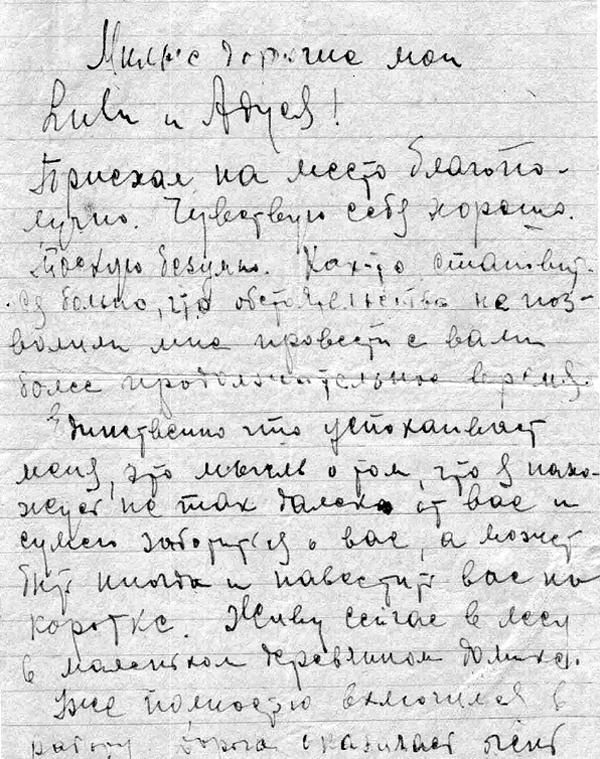 Милые дорогие мои
и Адуся!
Приехал на место благопо-
лучно. Чувствую себя хорошо.
Тоскую безумно. Как-то становит-
ся больно, что обстоятельства не поз-
волили мне провести с вами
более продолжительное время.
Единственно что успокаивает
меня, это мысль о том, что я нахо-
жусь не так далеко от вас и
сумею заботиться о вас, а может
быть иногда и навестить вас на
коротке. Живу сейчас в лесу
в маленьком деревянном домике.
Уже полностью включился в
работу. Дорога очень